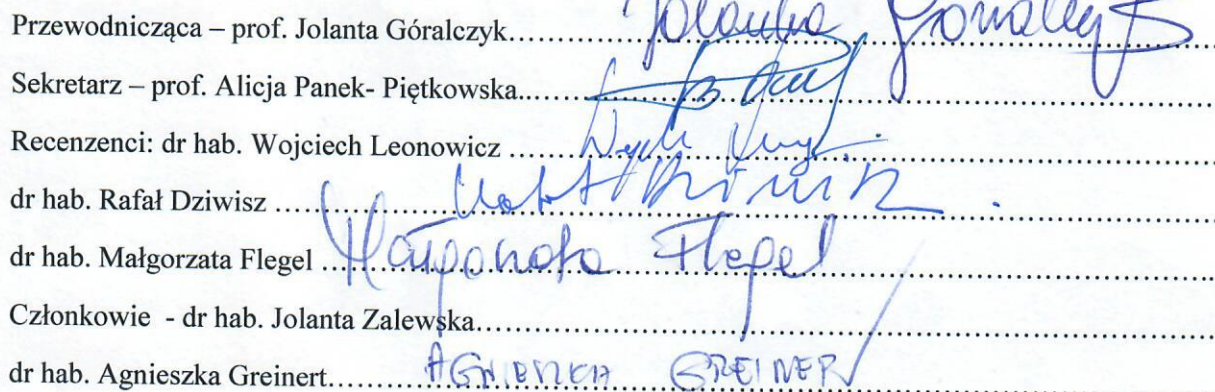 Przewodnicząca – prof. Jolanta Góralczyk.......... Jolanta Góralczyk
Sekretarz – prof. Alicja Panek- Piętkowska..........
Recenzenci: dr hab. Wojciech Leonowicz ..........
dr hab. Rafał Dziwisz ..........
dr hab. Małgorzata Flegel .......... Małgorzata Flegel
Członkowie - dr hab. Jolanta Zalewska..........
dr hab. Agnieszka Greinert.......... AGNIESZKA GREINERT